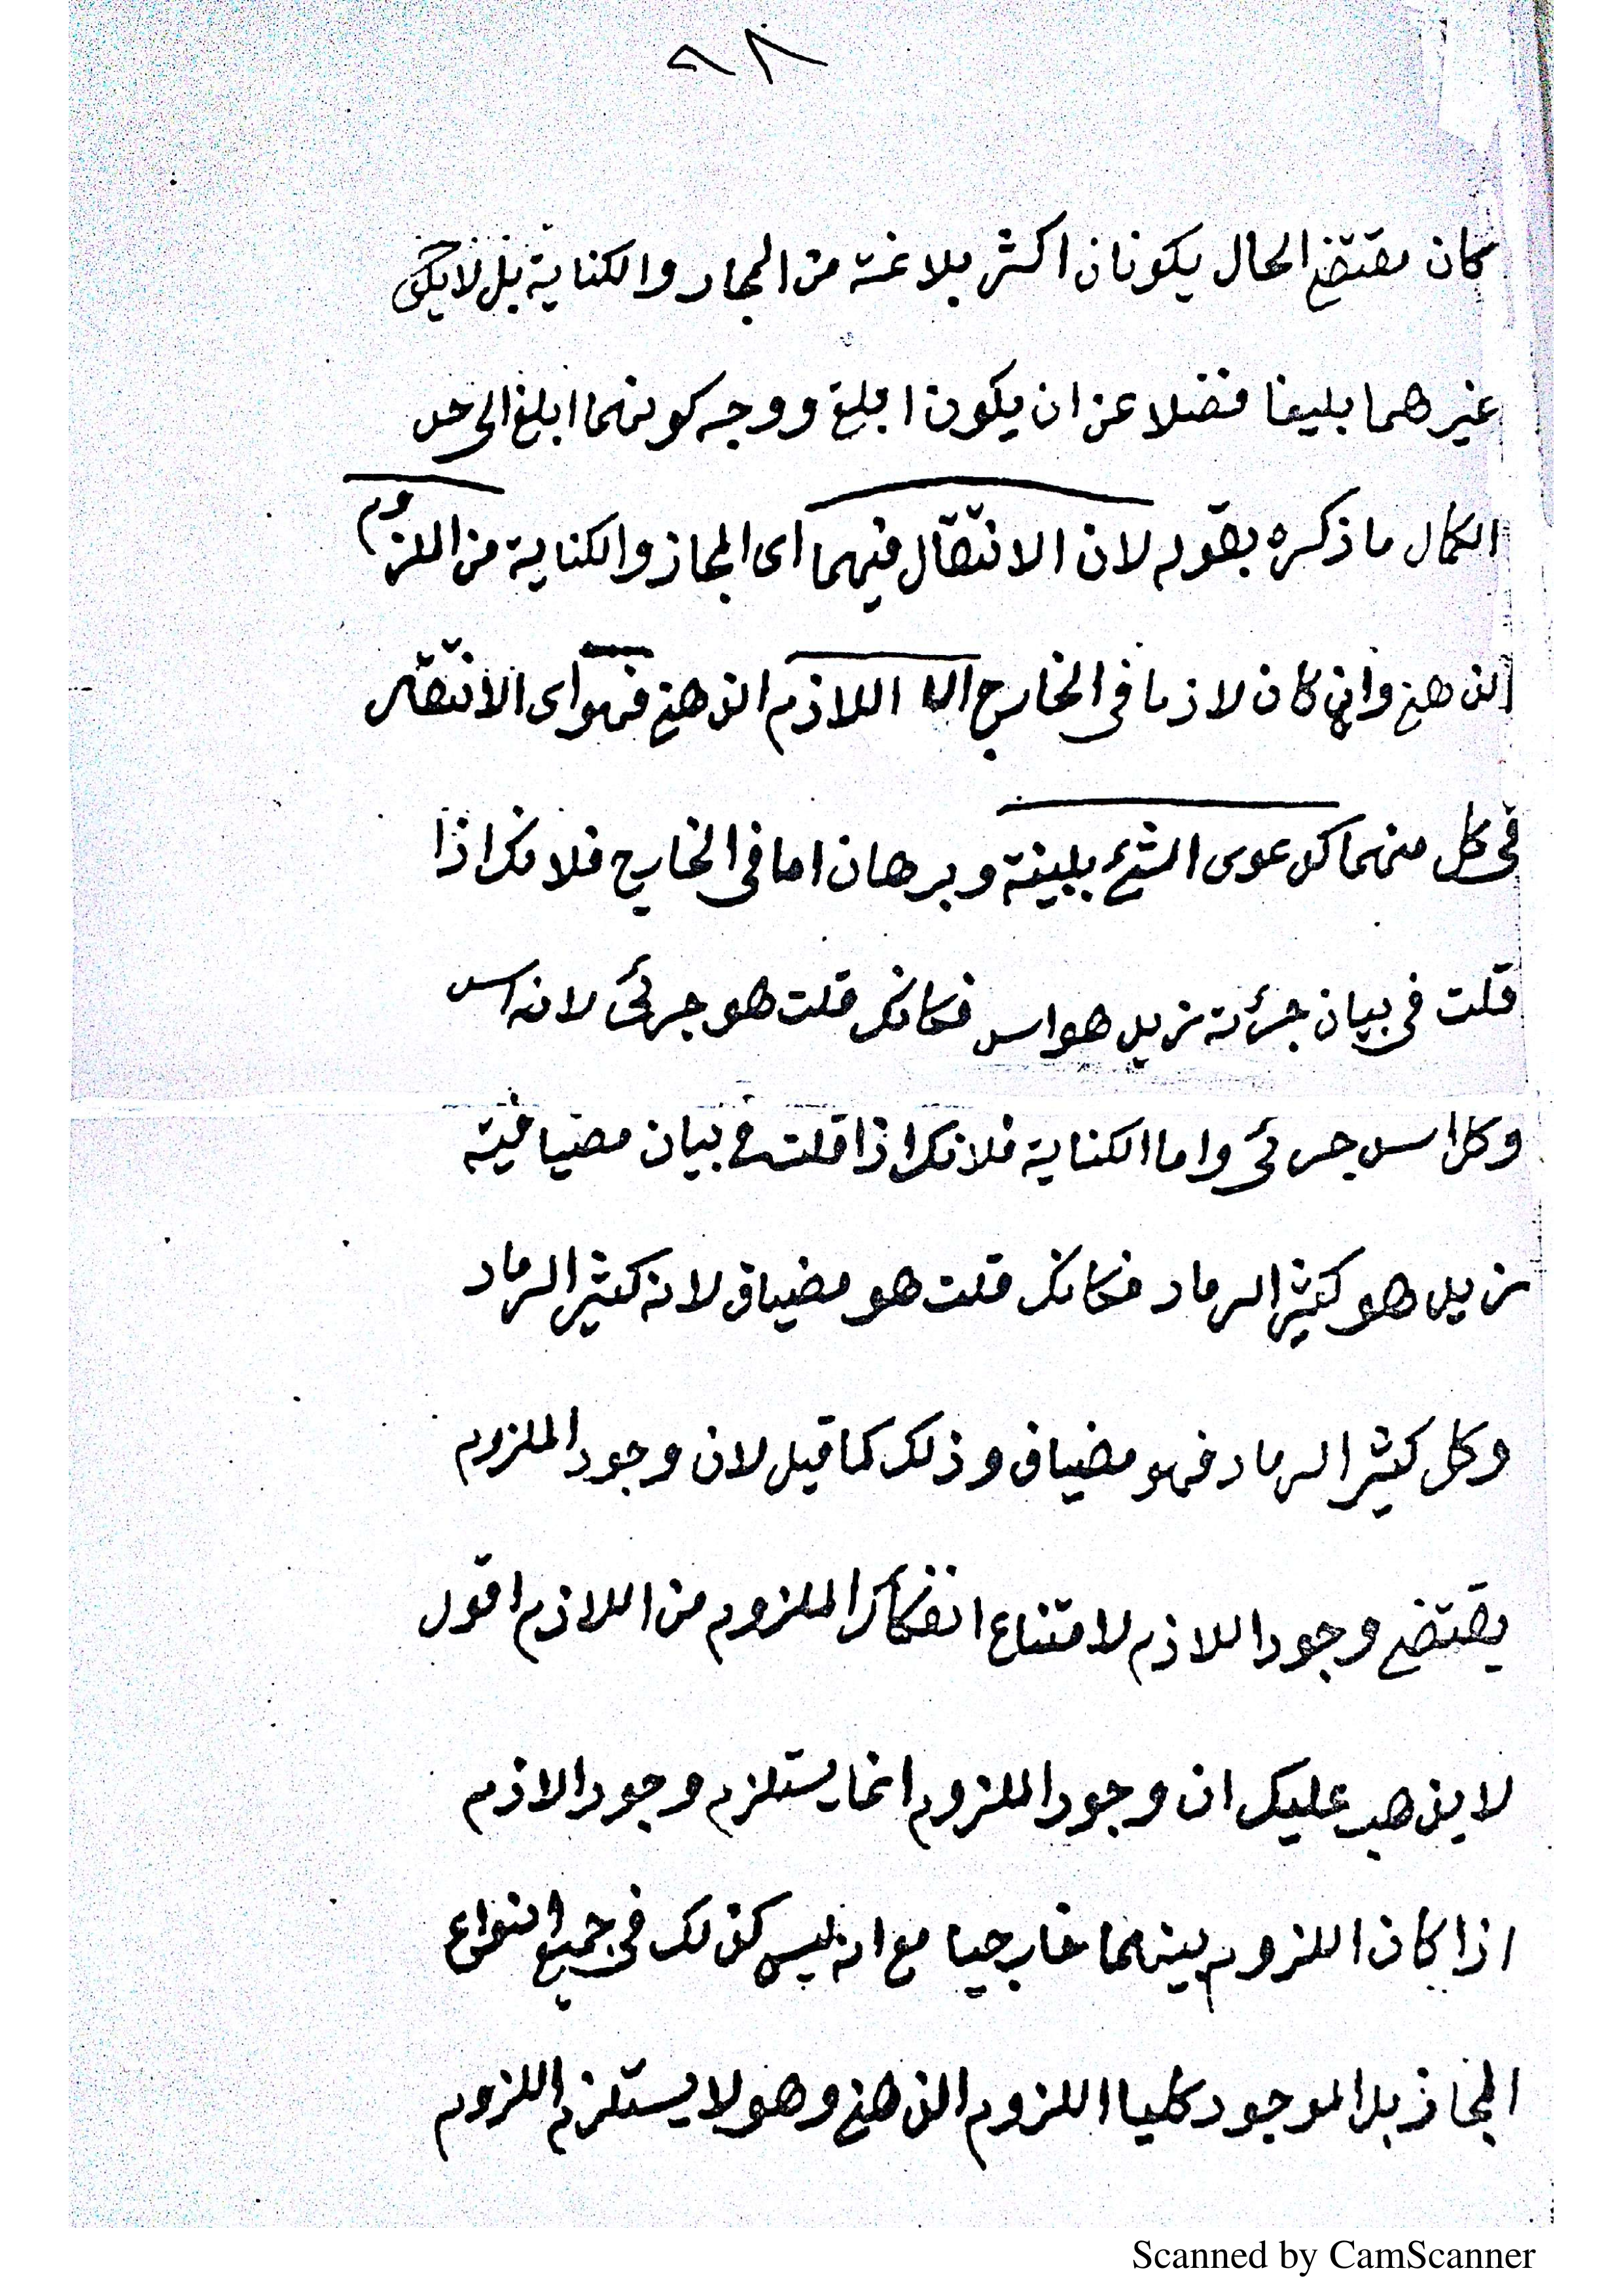 ٩٨
كان مقتضى الحال يكونان اكثر بلاغة من المجاز والكناية بل لا يكون
غيرهما بليغا فضلا عن ان يكون ابلغ ووجه كونهما ابلغ الى حد
الكمال ما ذكره بقوله لان الانتقال فيهما اى المجاز والكناية من الملزوم
الذهنى وان كان لازما فى الخارج الى اللازم الذهنى فهو اى الانتقال
فى كل منهما كدعوى الشئ ببينة وبرهان اما فى الخارج فلانك اذا
قلت فى بيان جرئة زيد هو اسد فكانك قلت هو جرئى لانه اسد
وكل اسد جرئى واما الكناية فلانك اذا قلت فى بيان مضيافية
زيد هو كثير الرماد فكانك قلت هو مضياف لانه كثير الرماد
وكل كثير الرماد فهو مضياف وذلك كما قيل لان وجود الملزوم
يقتضى وجود اللازم لامتناع انفكاك الملزوم من اللازم اقول
لا يذهب عليك ان وجود الملزوم انما يستلزم وجود الازم
اذا كان اللزوم بينهما خارجيا مع انه ليس كذلك فى جميع انواع
المجاز بل الموجود كليا اللزوم الذهنى وهو لا يستلزم اللزوم
Scanned by CamScanner